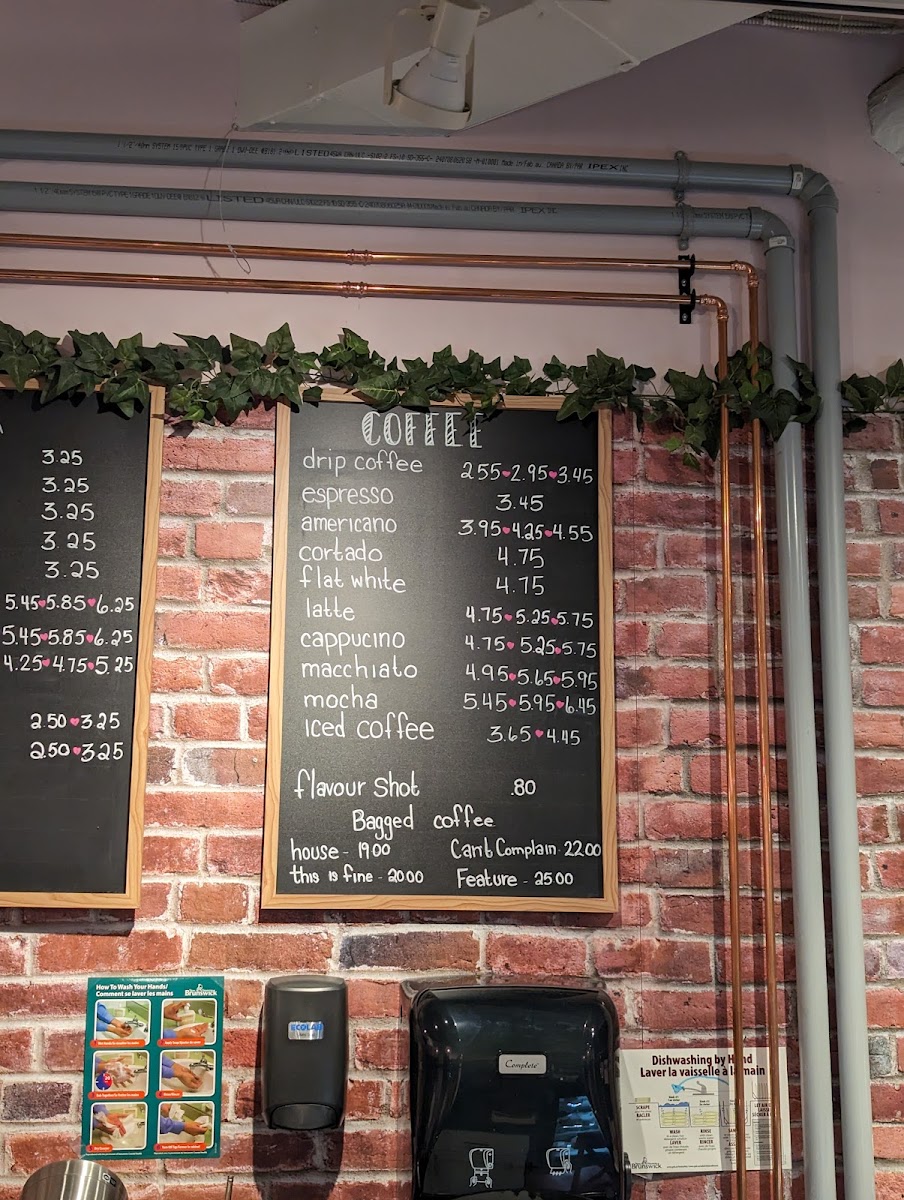 LISTED
IPEX
LISTED
IPEX
3.25
3.25
3.25
3.25
3.25
5.45 5.85 6.25
5.45 5.85 6.25
4.25 4.75 5.25
2.50 3.25
2.50 3.25
COFFEE
drip coffee 2.55 2.95 3.45
espresso 3.45
americano 3.95 4.25 4.55
cortado 4.75
flat white 4.75
latte 4.75 5.25 5.75
cappucino 4.75 5.25 5.75
macchiato 4.95 5.65 5.95
mocha 5.45 5.95 6.45
Iced coffee 3.65 4.45
flavour Shot .80
Bagged coffee
house - 19.00 Can't Complain - 22.00
this is fine - 20.00 Feature - 25.00
How To Wash Your Hands/
Comment se laver les mains
Brunswick
ECOLAB
Complete
Dishwashing by Hand
Laver la vaisselle à la main
SCRAPE
RACLER
WASH
LAVER
RINSE
RINCER
Brunswick